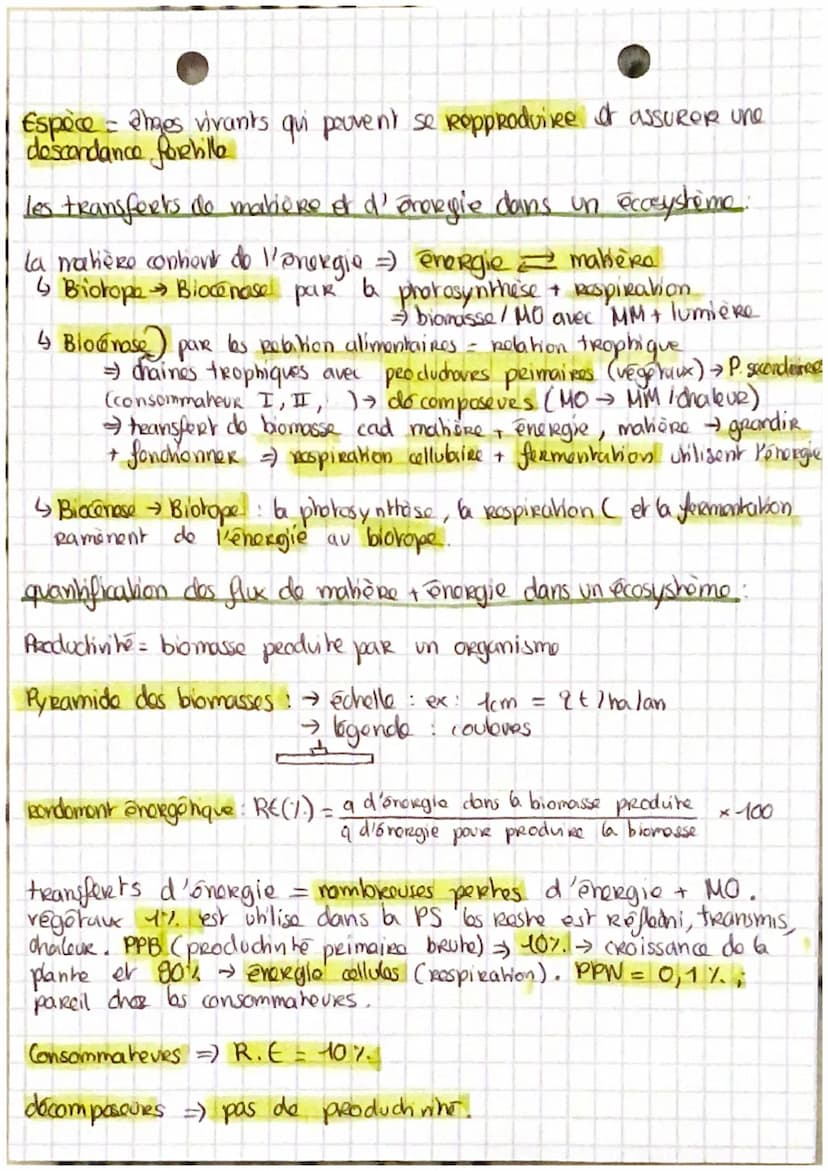 Espèce = êtres vivants qui peuvent se repproduire et assurer une
descendance fertile
les transferts de matière et d'énergie dans un éccosystème :
La matière contient de l'énergie => énergie ⇄ matière
↳ Biotope → Biocénose par la photosynthèse + respiration
=> biomasse / MO avec MM + lumière
↳ Biocénose⤸ par les relation alimentaires = relation trophique
=> chaînes trophiques avec producteurs primaires (végétaux) → P. secondaires
(consommateur I, II, ) → décomposeurs (MO → MM / chaleur)
=> transfert de biomasse cad matière + énergie, matière → grandir
+ fonctionner => respiration cellulaire + fermentation utilisent l'énergie
↳ Biocénose → Biotope : la photosynthèse, la respiration ( et la fermentation
ramènent de l'énergie au biotope.
quantification des flux de matière + énergie dans un écosystème :
Productivité = biomasse produite par un organisme
Pyramide des biomasses : → échelle : ex : 1cm = 2 t / ha / an
→ légende : couleurs
rendement énergétique : RE(%) = q d'énergie dans la biomasse produite × 100
q d'énergie pour produire la biomasse
transferts d'énergie = nombreuses pertes d'énergie + MO.
végétaux 1% est utilisé dans la PS les reste est réfléchi, transmis,
chaleur. PPB (productivité primaire brute) => 10% → croissance de la
plante et 90% → énergie cellules (respiration). PPN = 0,1 % ;
pareil chez les consommateurs.
Consommateurs => R.E = 10 %.
décomposeurs => pas de productivité.